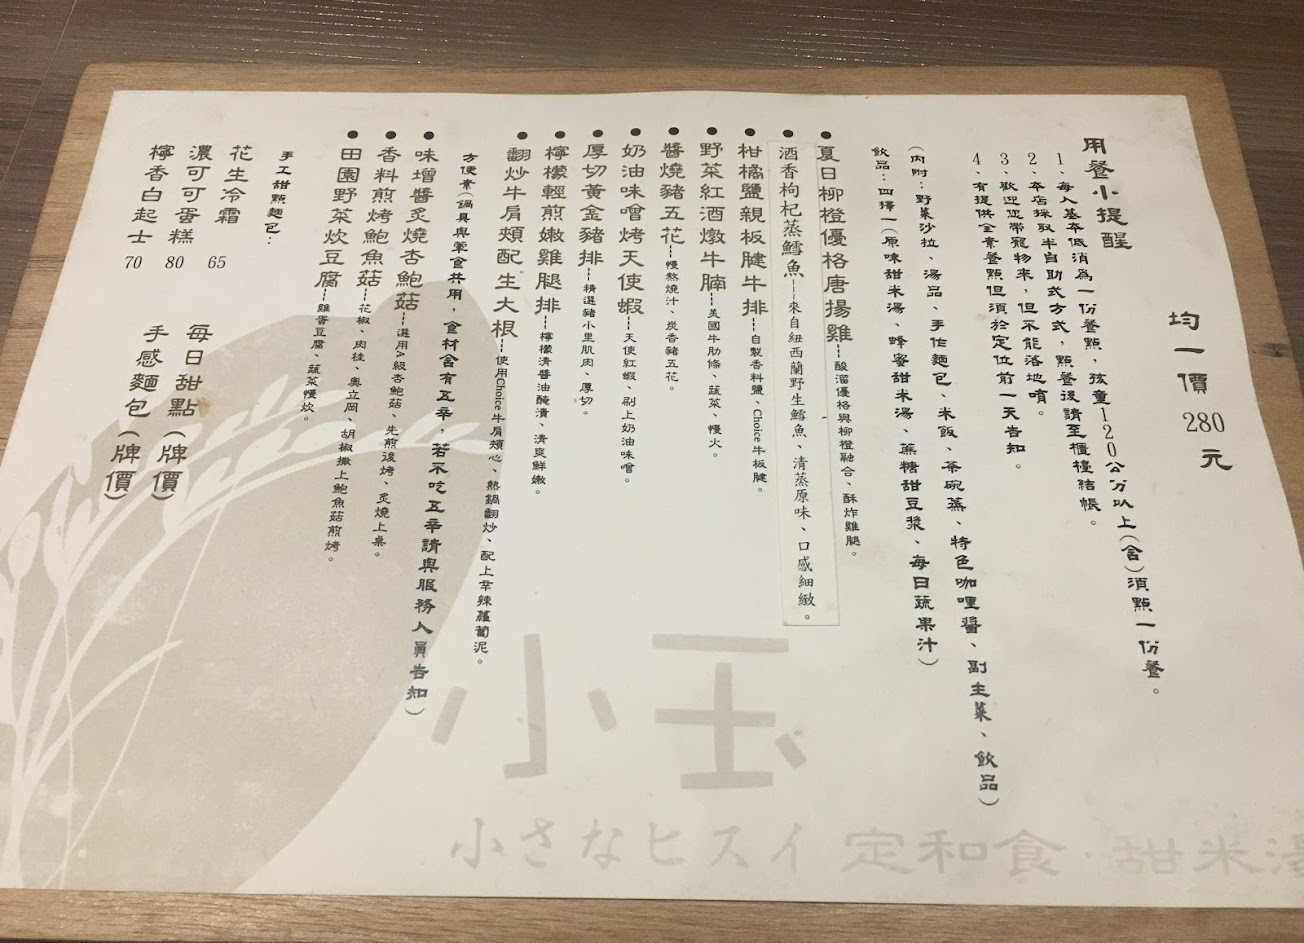 均一價 280 元
用餐小提醒
1、每人基本低消為一份餐點，孩童120公分以上(含)須點一份餐。
2、本店採取半自助式方式，點餐後請至櫃檯結帳。
3、歡迎您帶寵物來，但不能落地唷。
4、有提供全素餐點但須於定位前一天告知。
(內附：野菜沙拉、湯品、手作麵包、米飯、茶碗蒸、特色咖哩醬、副主菜、飲品)
飲品：四擇一(原味甜米湯、蜂蜜甜米湯、蔗糖甜豆漿、每日蔬果汁)
●夏日柳橙優格唐揚雞---酸溜優格與柳橙融合、酥炸雞腿。
●酒香枸杞蒸鱈魚---來自紐西蘭野生鱈魚、清蒸原味、口感細緻。
●柑橘鹽親板腱牛排---自製香料鹽、Choice牛板腱。
●野菜紅酒燉牛腩---美國牛肋條、蔬菜、慢火。
●醬燒豬五花---慢熬燒汁、炭香豬五花。
●奶油味噌烤天使蝦---天使紅蝦、刷上奶油味噌。
●厚切黃金豬排---精選豬小里肌肉、厚切。
●檸檬輕煎嫩雞腿排---檸檬清醬油醃漬、清爽鮮嫩。
●翻炒牛肩頰配生大根---使用Choice牛肩頰心、熱鍋翻炒、配上辛辣蘿蔔泥。
方便素(鍋具與葷食共用，食材含有五辛，若不吃五辛請與服務人員告知)
●味增醬炙燒杏鮑菇---選用A級杏鮑菇、先煎後烤、炙燒上桌。
●香料煎烤鮑魚菇---花椒、肉桂、奧立岡、胡椒撒上鮑魚菇煎烤。
●田園野菜炊豆腐---雞蛋豆腐、蔬菜慢炊。
手工甜點麵包：
花生冷霜 65
濃可可蛋糕 80
檸香白起士 70
每日甜點(牌價)
手感麵包(牌價)
小玉
小さなヒスイ 定和食・甜米湯